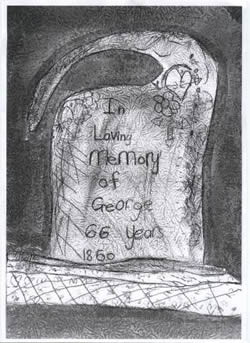 In
Loving
Memory
of
George
66 Years
1860